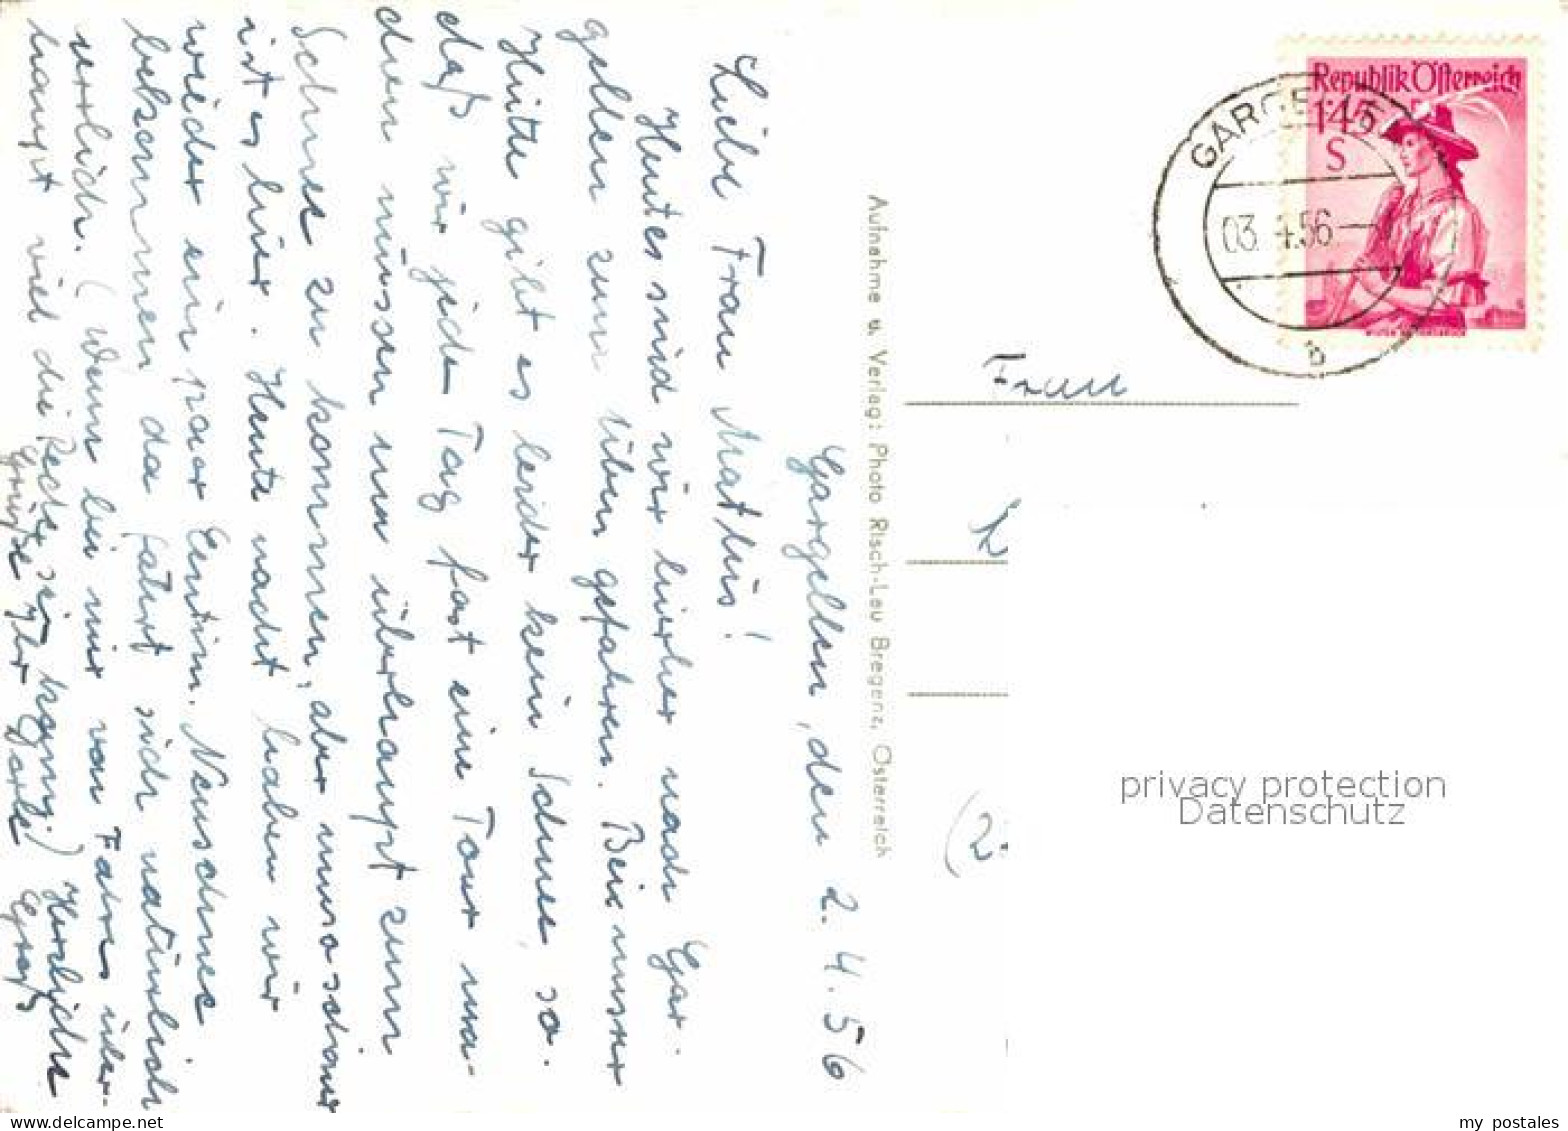 Gargellen, den 2. 4. 56
Liebe Frau Mathis!
Heute sind wir hierher nach Gar-
gellen zum Üben gefahren. Bei unserer
Hütte gibt es leider kein Schnee, so
daß wir jeden Tag fast eine Tour ma-
chen müssen um überhaupt zum
Schnee zu kommen, aber umso schöner
ist es hier. Heute nacht haben wir
wieder ein paar Centim. Neuschnee
bekommen da fährt sich natürlich
herrlich. (Wenn bei mir von Fahren über-
haupt viel die Rede sein kann!) Herzliche
Grüße Ihre
Aufnahme u. Verlag: Photo Risch-Lau Bregenz, Österreich
Republik Österreich
1.45
S
GARGELLEN
03. 4.56
b
Frau
(2.
privacy protection
Datenschutz
my postales